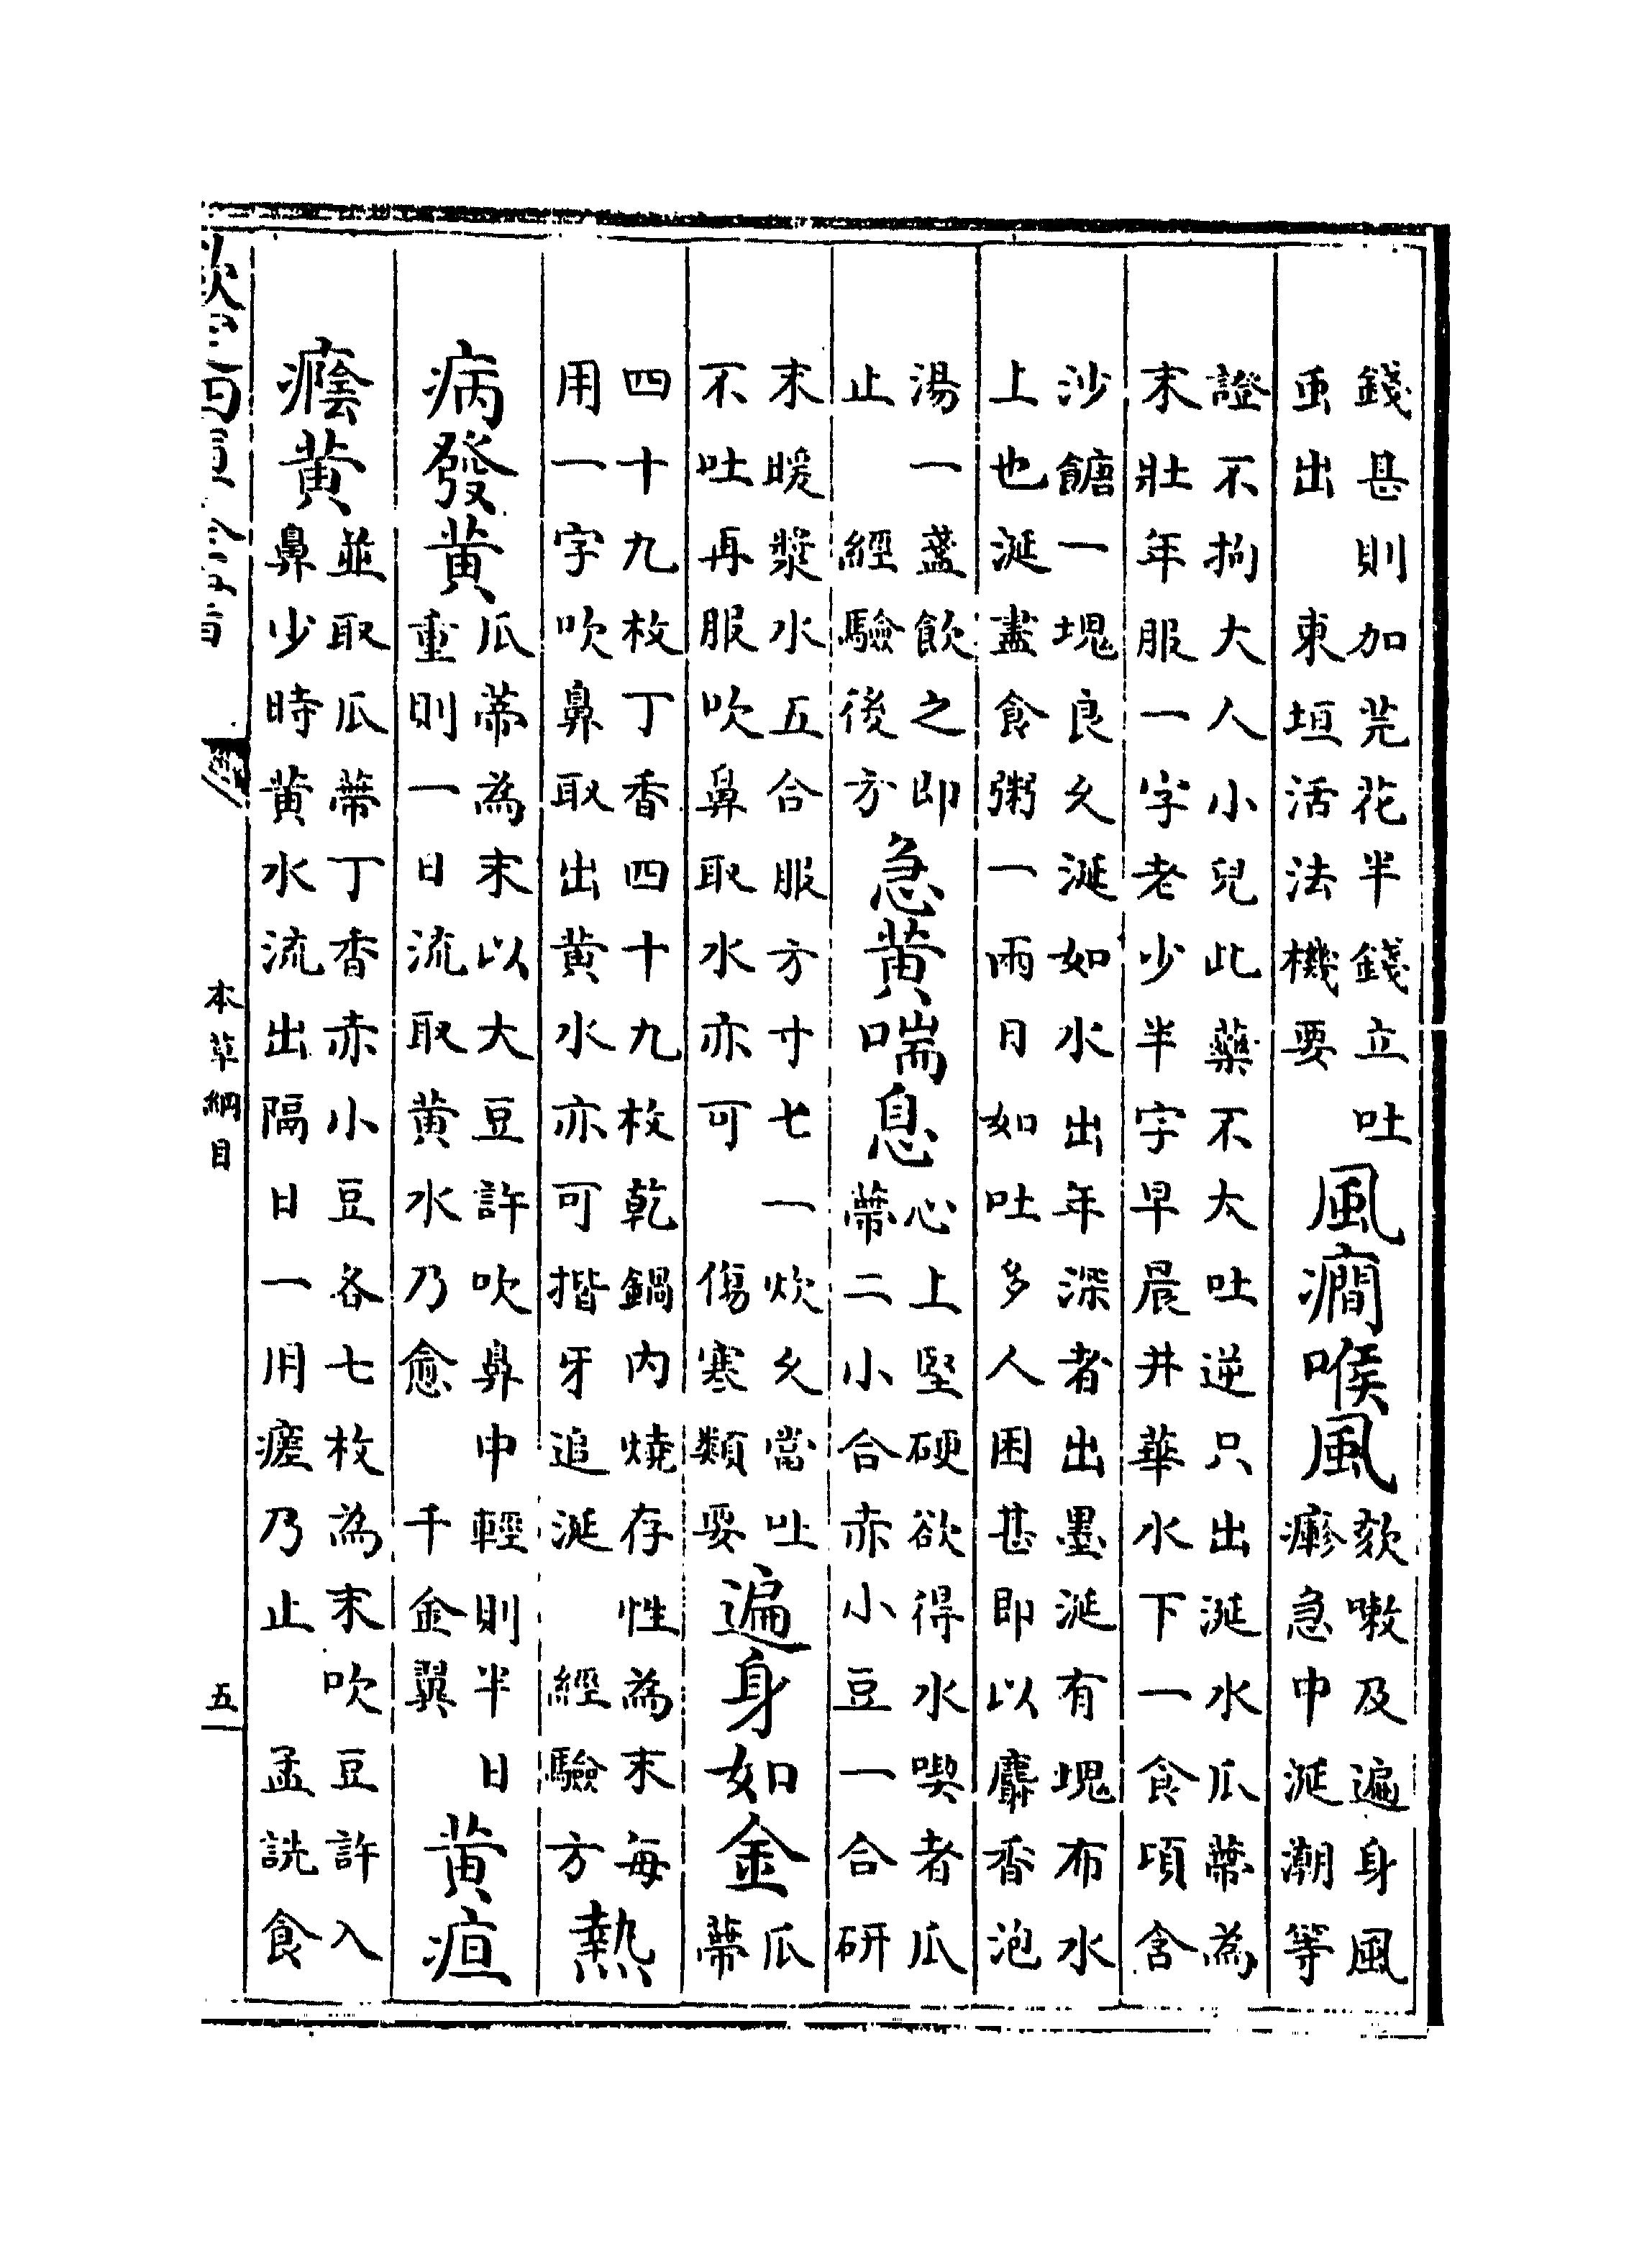 錢甚則加芫花半錢立吐䖝出 東垣活法機要 風癎喉風 欬嗽及遍身風瘮急中涎潮等
證不拘大人小兒此藥不大吐逆只出涎水瓜蔕為末壯年服一字老少半字早晨井華水下一食頃含
沙餹一塊良乆涎如水出年深者出墨涎有塊布水上也涎盡食粥一兩日如吐多人困甚即以麝香泡
湯一盞飲之即止 經驗後方 急黄喘息 心上堅硬欲得水喫者瓜蔕二小合赤小豆一合研
末暖漿水五合服方寸七一炊乆當吐不吐再服吹鼻取水亦可 傷寒類要 遍身如金 瓜蔕
四十九枚丁香四十九枚乾鍋内燒存性為末每用一字吹鼻取出黄水亦可揩牙追涎 經驗方 熱
病發黄 瓜蒂為末以大豆許吹鼻中輕則半日重則一日流取黄水乃愈 千金翼 黄疸
癊黄 並取瓜蔕丁香赤小豆各七枚為末吹豆許入鼻少時黄水流出隔日一用瘥乃止 孟詵食
本草綱目
五